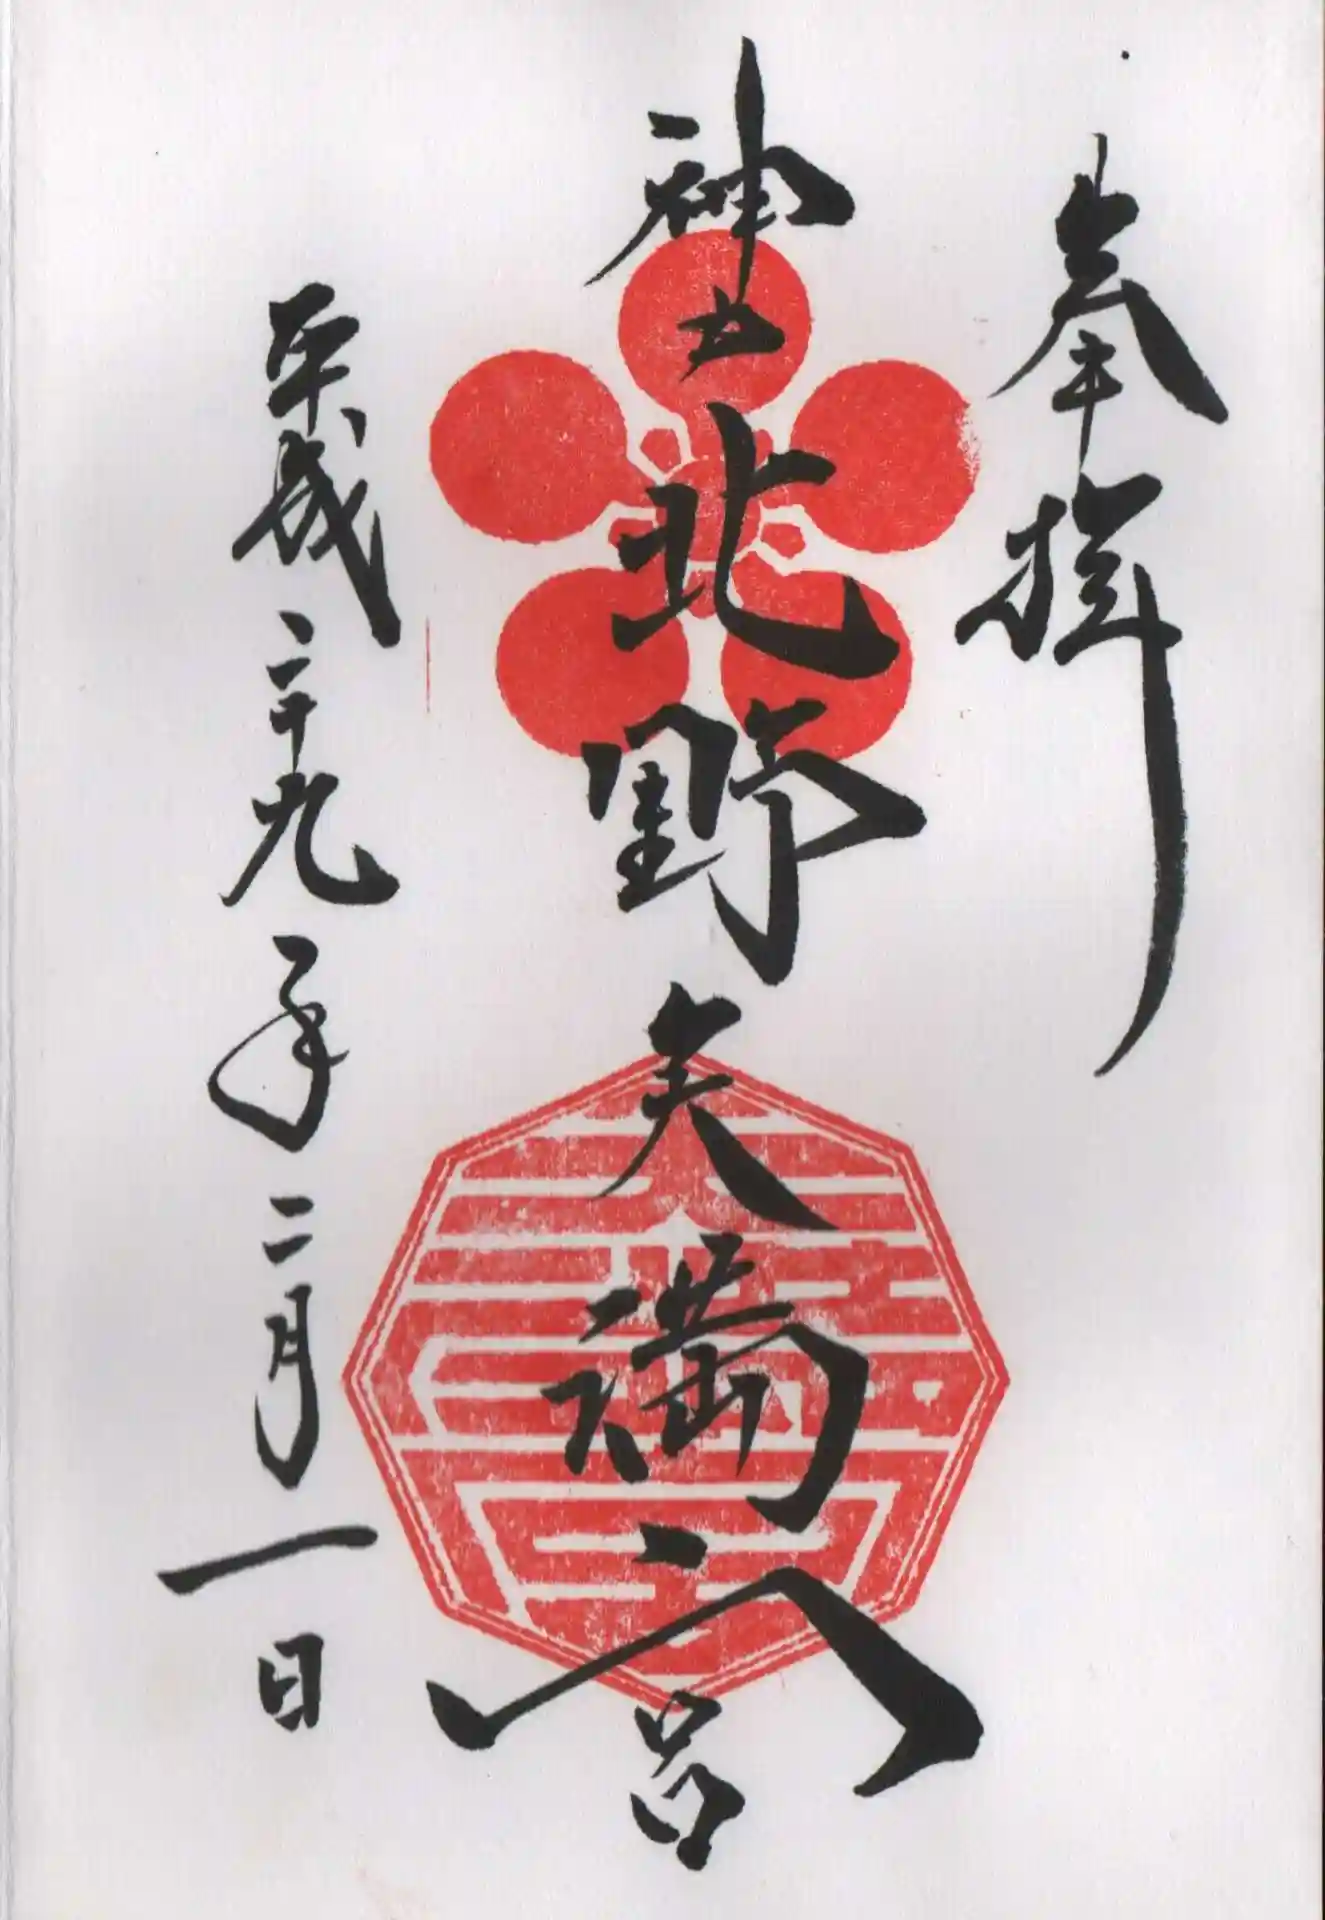 奉拝
神戸北野天満宮
平成二十九年二月一日